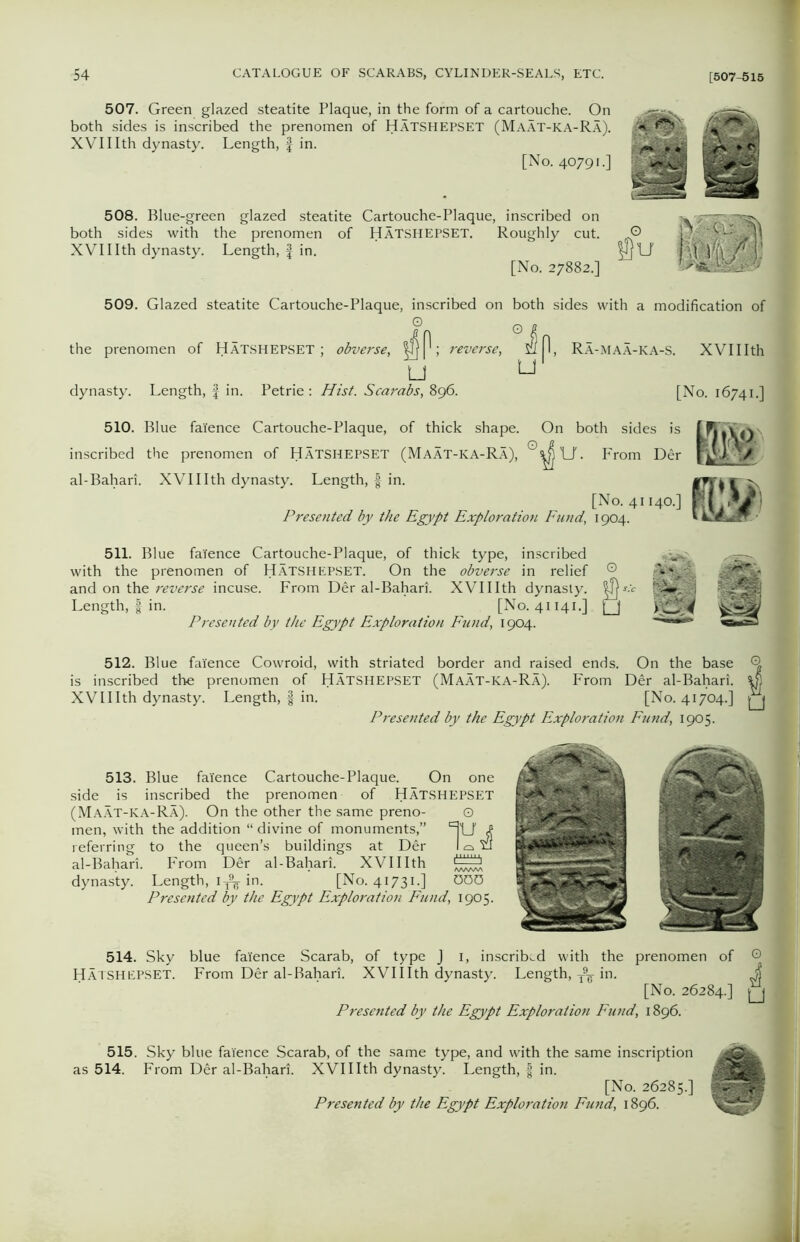 54 CATALOGUE OF SCARABS, CYLINDER-SEALS, ETC. [507-515
507. Green glazed steatite Plaque, in the form of a cartouche. On
both sides is inscribed the prenomen of ḤĀTSHEPSET (MAĀT-KA-RĀ).
XVIIIth dynasty. Length, ¾ in.
[No. 40791.]
508. Blue-green glazed steatite Cartouche-Plaque, inscribed on
both sides with the prenomen of ḤĀTSHEPSET. Roughly cut.
XVIIIth dynasty. Length, ¾ in.
[No. 27882.]
509. Glazed steatite Cartouche-Plaque, inscribed on both sides with a modification of
the prenomen of ḤĀTSHEPSET ; obverse, ; reverse, , RĀ-MAĀ-KA-S. XVIIIth
dynasty. Length, ¾ in. Petrie : Hist. Scarabs, 896. [No. 16741.]
510. Blue faïence Cartouche-Plaque, of thick shape. On both sides is
inscribed the prenomen of ḤĀTSHEPSET (MAĀT-KA-RĀ), . From Dêr
al-Baḥari. XVIIIth dynasty. Length, ⅝ in.
[No. 41140.]
Presented by the Egypt Exploration Fund, 1904.
511. Blue faïence Cartouche-Plaque, of thick type, inscribed
with the prenomen of ḤĀTSHEPSET. On the obverse in relief
and on the reverse incuse. From Dêr al-Baḥari. XVIIIth dynasty. sic
Length, ⅝ in. [No. 41141.]
Presented by the Egypt Exploration Fund, 1904.
512. Blue faïence Cowroid, with striated border and raised ends. On the base
is inscribed the prenomen of ḤĀTSHEPSET (MAĀT-KA-RĀ). From Dêr al-Baḥari.
XVIIIth dynasty. Length, ⅝ in. [No. 41704.]
Presented by the Egypt Exploration Fund, 1905.
513. Blue faïence Cartouche-Plaque. On one
side is inscribed the prenomen of ḤĀTSHEPSET
(MAĀT-KA-RĀ). On the other the same preno-
men, with the addition “ divine of monuments,”
referring to the queen’s buildings at Dêr
al-Baḥari. From Dêr al-Baḥari. XVIIIth
dynasty. Length, 1 9/16 in. [No. 41731.]
Presented by the Egypt Exploration Fund, 1905.
514. Sky blue faïence Scarab, of type J 1, inscribed with the prenomen of
ḤĀTSHEPSET. From Dêr al-Baḥari. XVIIIth dynasty. Length, 9/16 in.
[No. 26284.]
Presented by the Egypt Exploration Fund, 1896.
515. Sky blue faïence Scarab, of the same type, and with the same inscription
as 514. From Dêr al-Baḥari. XVIIIth dynasty. Length, ⅝ in.
[No. 26285.]
Presented by the Egypt Exploration Fund, 1896.